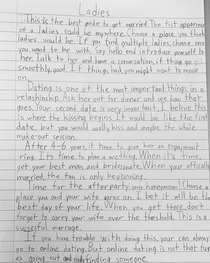 Ladies
This is the best guide to get married. The fist apperence
of a ladies could be anywhere. Choose a place you think
ladies would be. If you find multiple ladies, choose one
you want to be with. Say hello and introduce yourself to
her. Talk to her and have a conversation, if thing go
smoothly, good. If things bad, you might want to move
on.
Dating is one of the most important things in a
relashinship. Ask her out for dinner and see how that
goes. Your second date is very important, I believe this
is where the kissing begins. It could be like the first
date, but you would wally kiss and maybe the whole
make-out session.
After 4-6 years, it time to give her an engagment
ring. Its time to plan a wedding. When it's time,
get your best man and bridesmaid. When your officially
married, the fun is only beginning.
Time for the afterparty, you honeymoon! Choose a
place you and your wife agree on. I bet it will be the
best day of your life. When you get there, don't
forget to carry your wife over the threshold. This is a
successful marrage.
If you have trouble with doing this, your can always
go to online dating. But online dating is not that fun
as going out and finding someone.